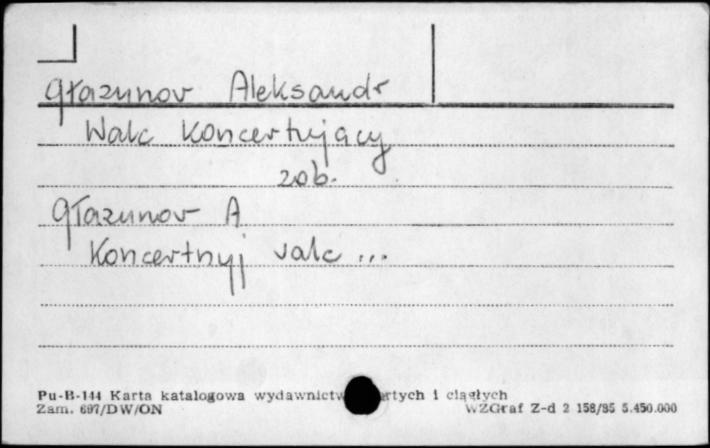 Głazunov Aleksandr
Walc Koncertujący
zob.
Głazunov A
Koncertnyj valc ...
Pu-B-144 Karta katalogowa wydawnictw i ciągłych
Zam. 697/DW/ON WZGraf Z-d 2 158/85 5.450.000